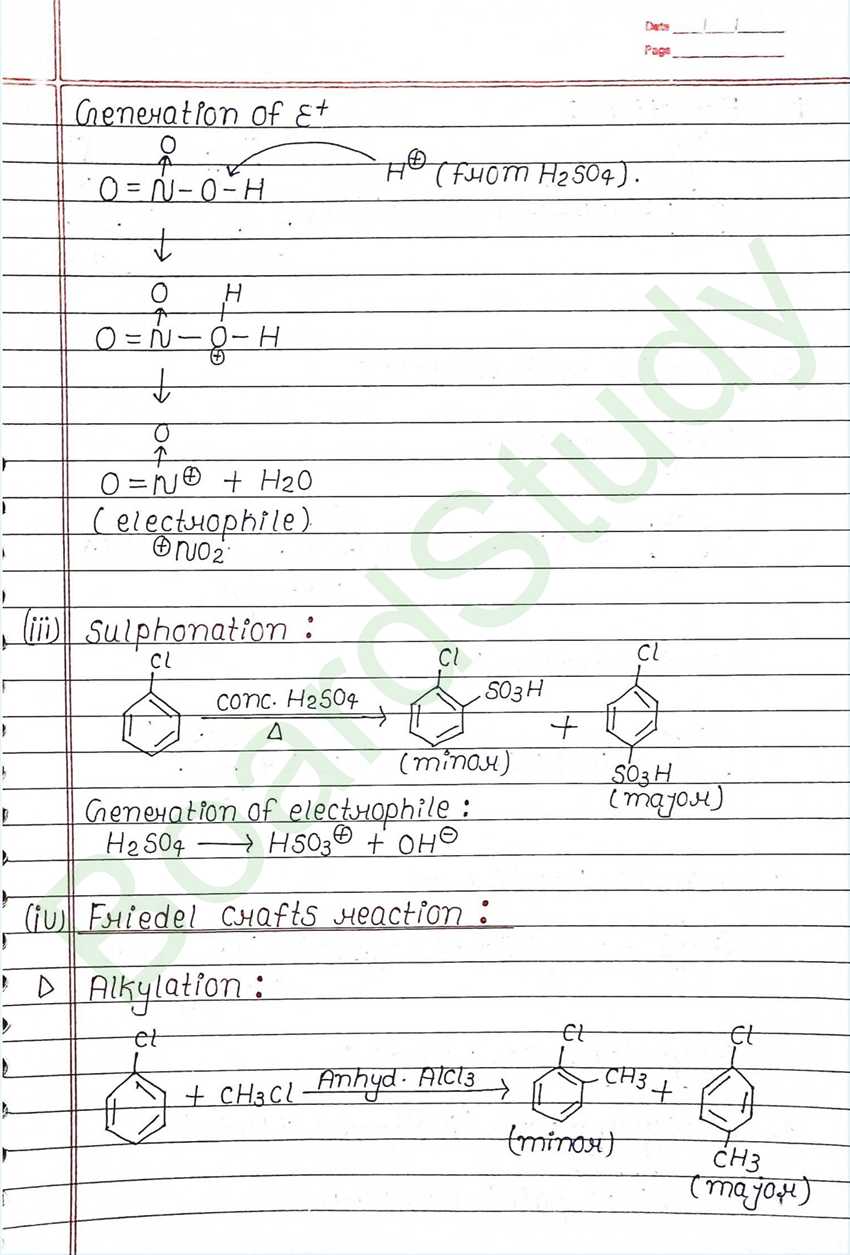 Date
Page
Generation of ε+
O
O = N - O - H H⊕ (from H2SO4).
O H
O = N - O - H
⊕
O
O = N⊕ + H2O
(electrophile)
⊕NO2
(iii) Sulphonation :
Cl Cl Cl
conc. H2SO4 SO3H
Δ +
(minor)
SO3H
(major)
Generation of electrophile :
H2SO4 ⟶ HSO3⊕ + OH⊖
(iv) Friedel crafts reaction :
▷ Alkylation :
Cl Cl Cl
+ CH3Cl Anhyd. AlCl3 ⟶ CH3 +
(minor)
CH3
(major)
BoardStudy